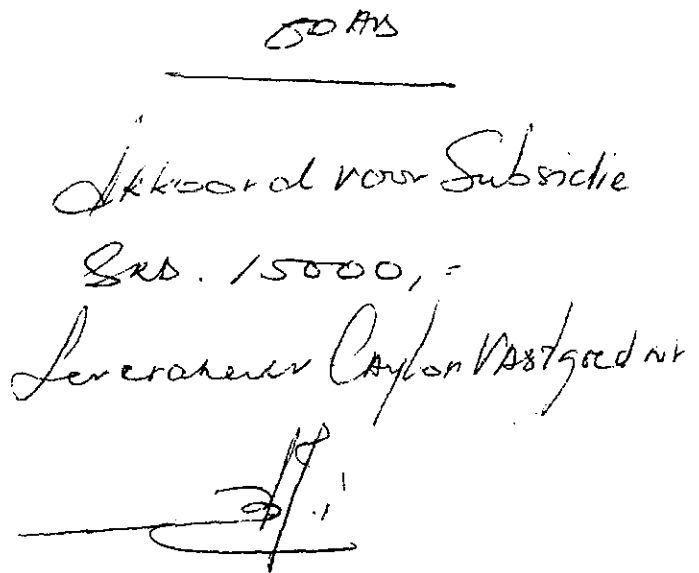 Akkoord voor Subsidie
SRD. 15000,=
Leverancier Caylon Vastgoed nv